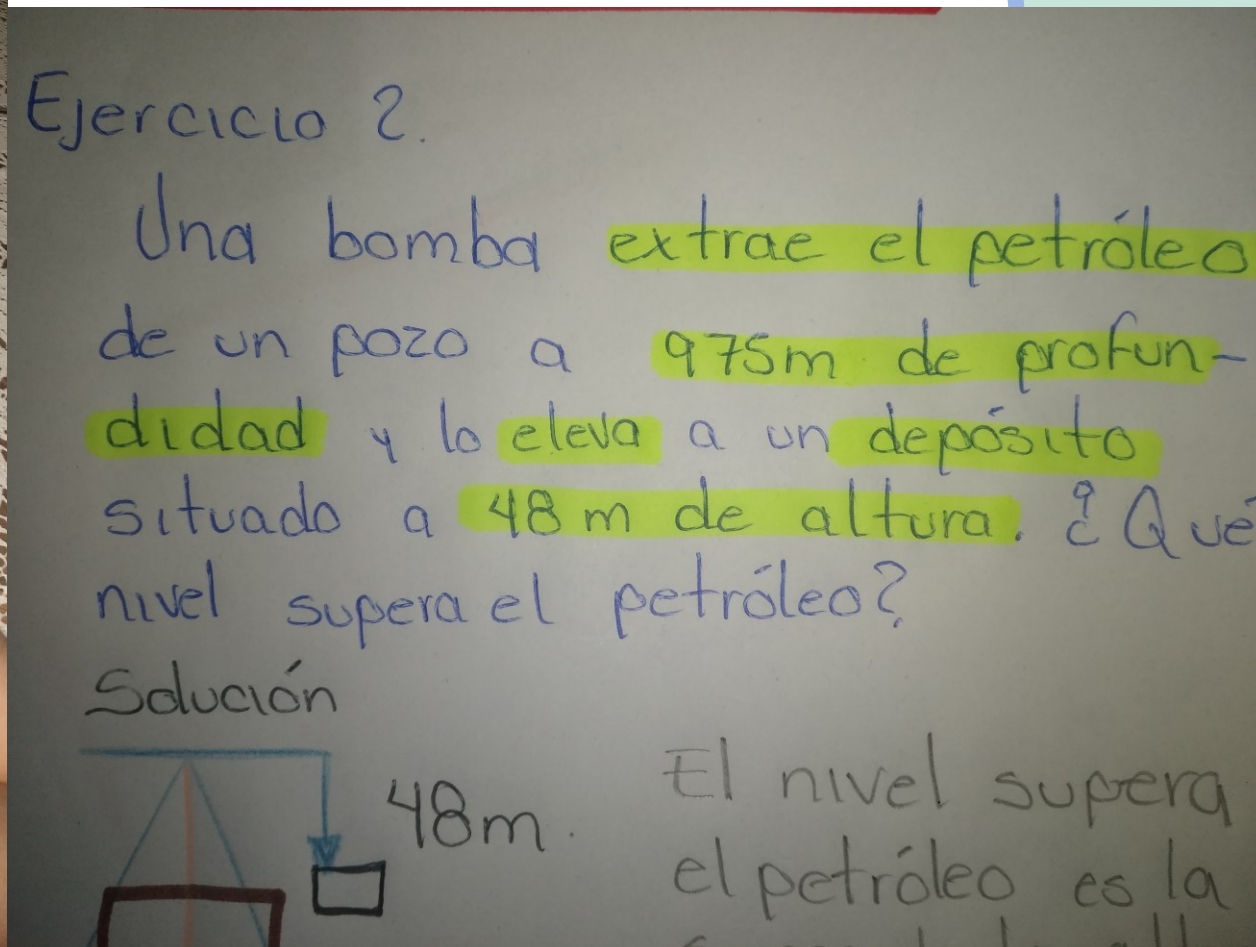 Ejercicio 2.
Una bomba extrae el petróleo
de un pozo a 975m de profun-
didad y lo eleva a un depósito
situado a 48 m de altura. ¿Qué
nivel supera el petróleo?
Solución
48m.
El nivel supera
el petróleo es la